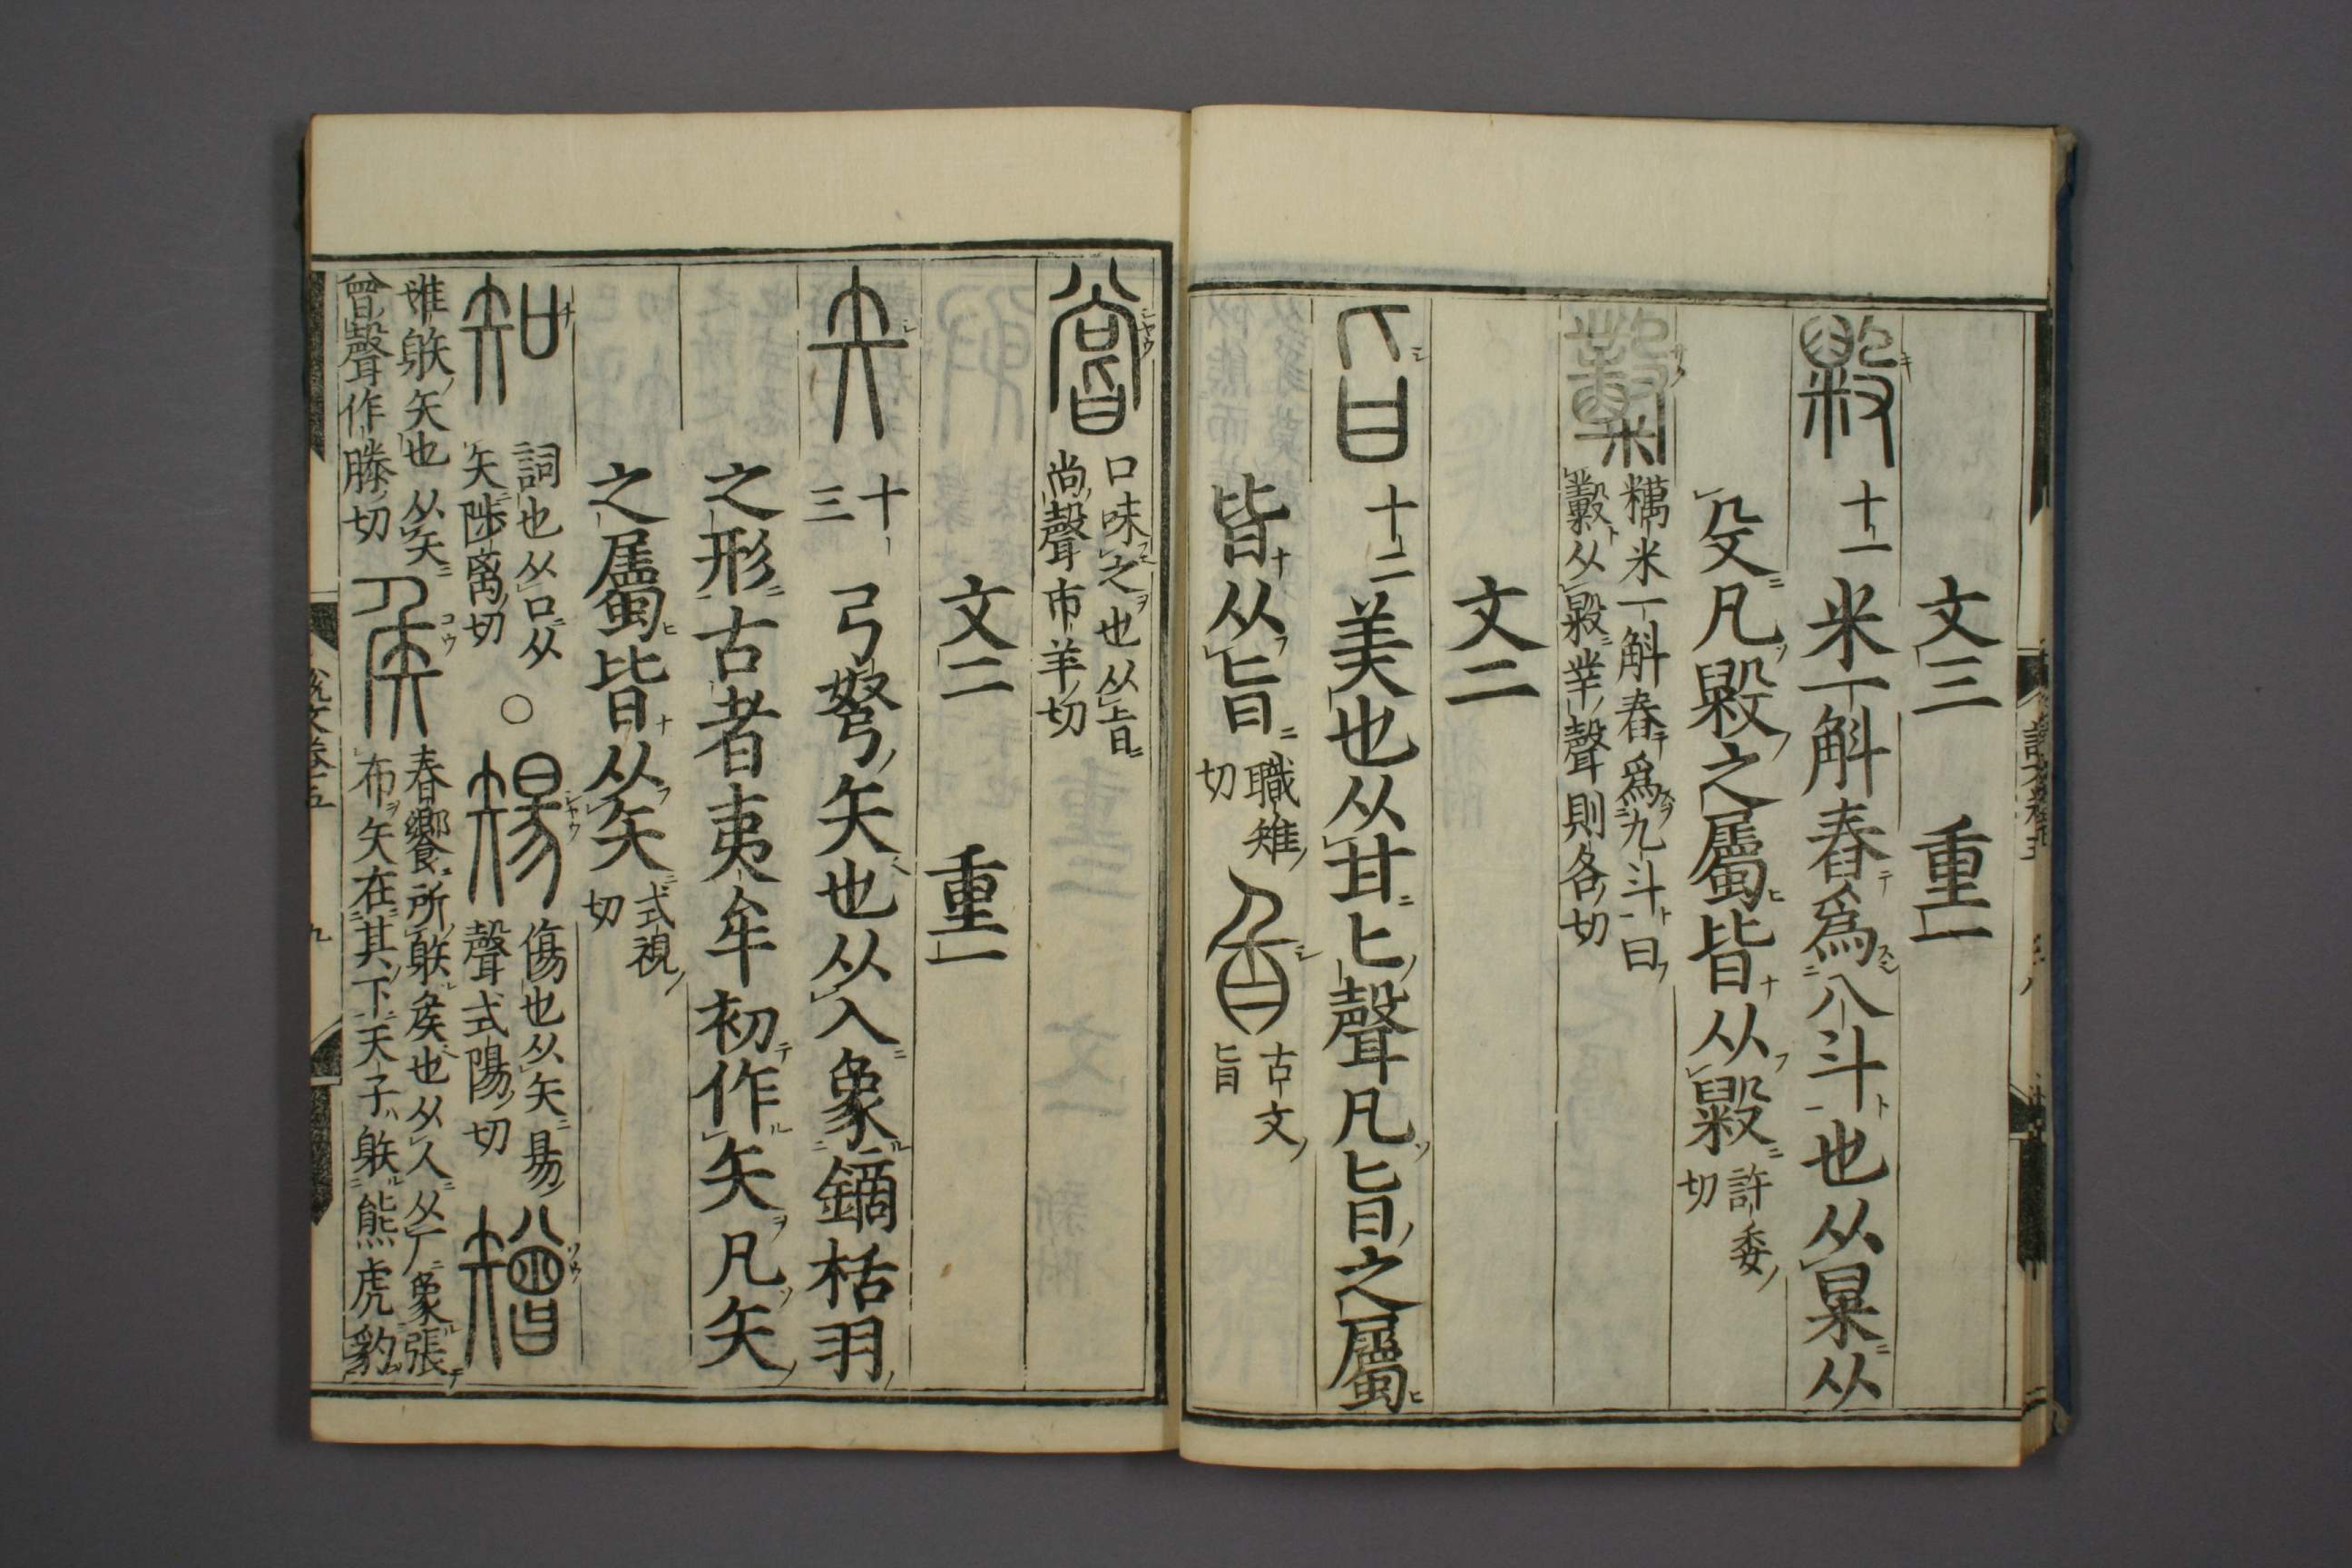 文三　重一
毇　十一　米一斛舂爲八斗也从臼米从
殳凡毇之屬皆从毇　許委切
糳　糲米一斛舂爲九斗曰
糳从毇丵聲則各切
文二
旨　十二　美也从甘匕聲凡旨之屬
皆从旨　職雉切　古文旨
嘗　口味之也从旨
尚聲市羊切
文二　重一
矢　十三　弓弩矢也从入象鏑栝羽
之形古者夷牟初作矢凡矢
之屬皆从矢　式視切
知　詞也从口从
矢陟离切　○
𥏻　傷也从矢昜
聲式陽切
矰
隿䠶矢也从矢
曾聲作滕切
矦　春饗所䠶矦也从人从厂象張
布矢在其下天子䠶熊虎豹
說文卷五　九